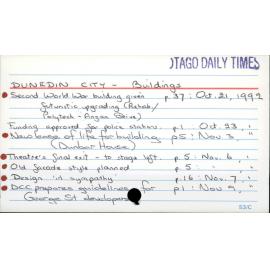 OTAGO DAILY TIMES
DUNEDIN CITY - Buildings
Second World War building given p.37 : Oct. 21, 1992
futuristic upgrading (Rehab/
Polytech - Anzac Drive)
Funding approved for police station. p1 : Oct. 23, "
New lease of life for building p5 : Nov. 3, "
(Dunbar House)
Theatre's final exit - to stage left. p.5 : Nov. 6, "
Old facade style planned p.5 : " "
Design in sympathy p.16 : Nov. 7, "
DCC prepares guidelines for p1 : Nov 9, "
George St developers
53/C